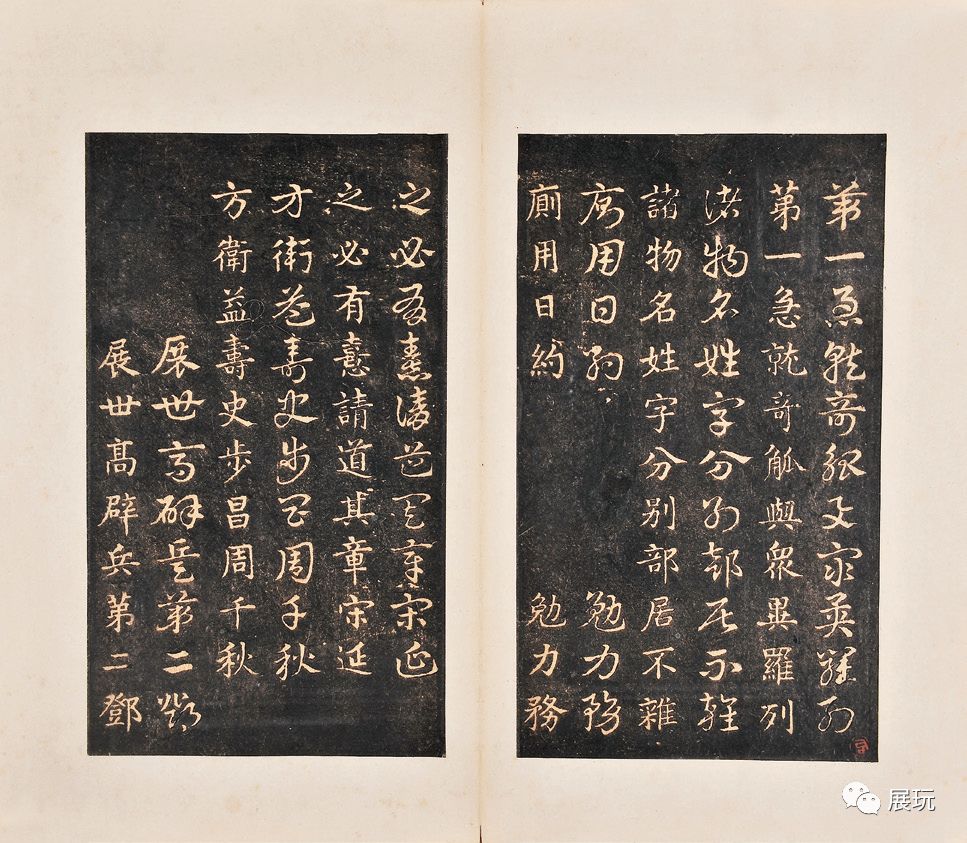 苐一急就奇觚與衆異羅列
苐一急就奇觚與衆異羅列
諸物名姓字分别部居不雜
諸物名姓字分别部居不雜
廁用日約 勉力務
廁用日約 勉力務
之必有憙請道其章宋延
之必有憙請道其章宋延
方衛益壽史步昌周千秋
方衛益壽史步昌周千秋
展世高辟兵苐二鄧
展世髙辟兵苐二鄧
展玩